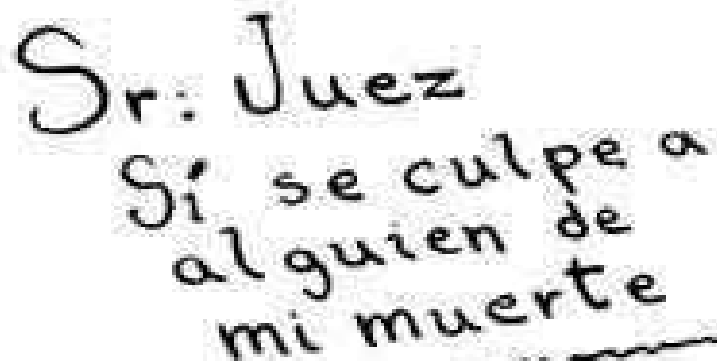 Sr: Juez
Sí se culpe a
alguien de
mi muerte